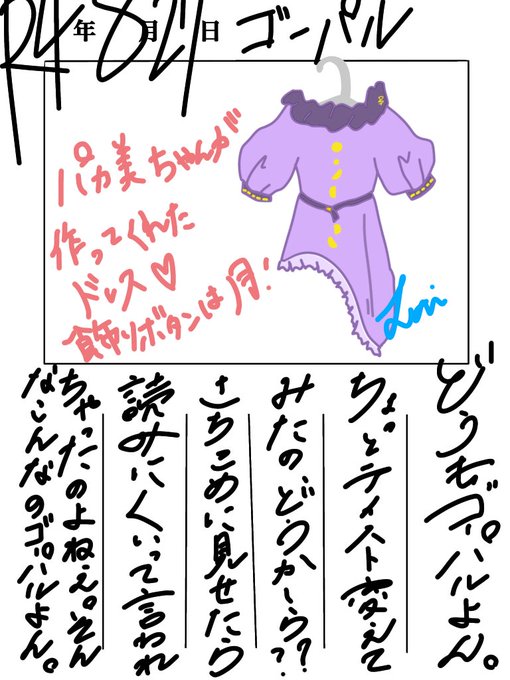 R4年8月27日 ゴンパル
パカ美ちゃんが
作ってくれた
ドレス♡
飾りボタンは月!
Luvi
どうも、ゴンパルよん。
ちょっとテイスト変えて
みたの、どうかしら??
さちこめに見せたら
読みにくいって言われ
ちゃったのよねぇ。そん
なこんなのゴンパルよん。